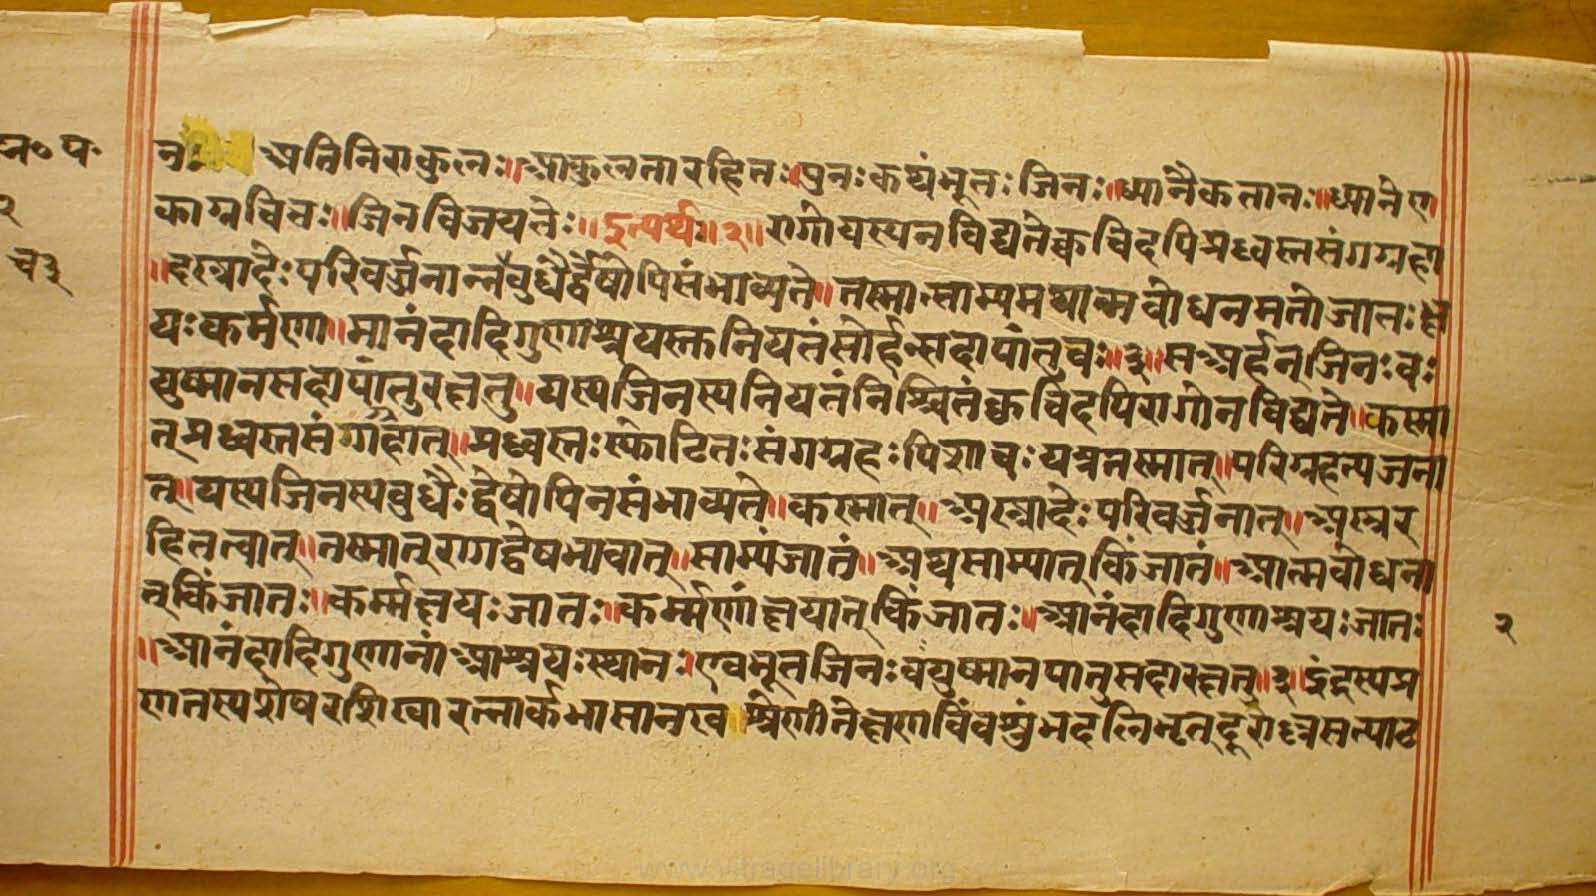 न॰ प॰
२
च३
नः अतिनिराकुलः॥आकुलतारहितः॥पुनःकथंभूतःजिनः॥ध्यानैकतानः॥ध्यानेए
काग्रचितः॥जिनविजयतेः॥इत्यर्थः॥२॥रागोयस्यनविद्यतेक्वचिदपिप्रध्वस्तसंगग्रहा
॥दस्त्रादेः परिवर्जनान्नबुधैर्द्वेषोपिसंभाव्यते॥तस्मात्साम्यमथात्मबोधनमतोजातःक्ष
यःकर्मणा॥मानंदादिगुणाश्रयस्तनियतंसोर्हन्सदापांतुवः॥३॥सअर्हन्जिनःवः
युष्मानसदापांतुरक्षतु॥यस्यजिनस्यनियतंनिश्चितंक्वचिदपिरागोनविद्यते॥कस्मा
त्प्रध्वस्तसंगग्रहात्॥प्रध्वस्तःस्फोटितःसंगग्रहःपिशाचःयत्रतस्मात्॥परिग्रहत्यजना
त्॥यस्यजिनस्यबुधैःद्वेषोपिनसंभाव्यते॥कस्मात्॥अस्त्रादेःपरिवर्जनात्॥अस्त्रर
हितत्वात्॥तस्मात्रागद्वेषभावात्॥साम्यंजातं॥अथसाम्यात्किंजातं॥आत्मबोधना
त्किंजातः॥कर्म्मक्षयःजातः॥कर्म्मणांक्षयात्किंजातः॥आनंदादिगुणाश्रयःजातः
॥आनंदादिगुणानांआश्रयःस्थानः॥एवभूतजिनःवयुष्मानपातुसदारक्षतु॥३॥इंद्रस्यप्र
णतस्यशेषरशिखारत्नार्कभासानख॥श्रेणीतेक्षणविंवशुंभदलिभृत्दूरोल्लसत्पाट
२
www.vitragelibrary.org